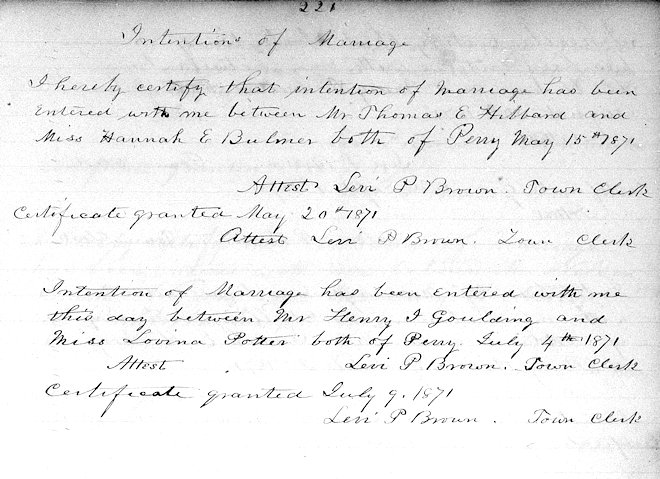 221
Intentions of Marriage
I hereby certify that intention of marriage has been
Entered with me between Mr Thomas E Hibbard and
Miss Hannah E Bulmer both of Perry May 15th 1871
Attest Levi P Brown. Town Clerk
Certificate granted May 20th 1871
Attest Levi P Brown. Town Clerk
Intention of Marriage has been Entered with me
this day between Mr Henry I Goulding and
Miss Lovina Potter both of Perry. July 4th 1871
Attest Levi P Brown. Town Clerk
Certificate granted July 9. 1871
Levi P Brown. Town Clerk